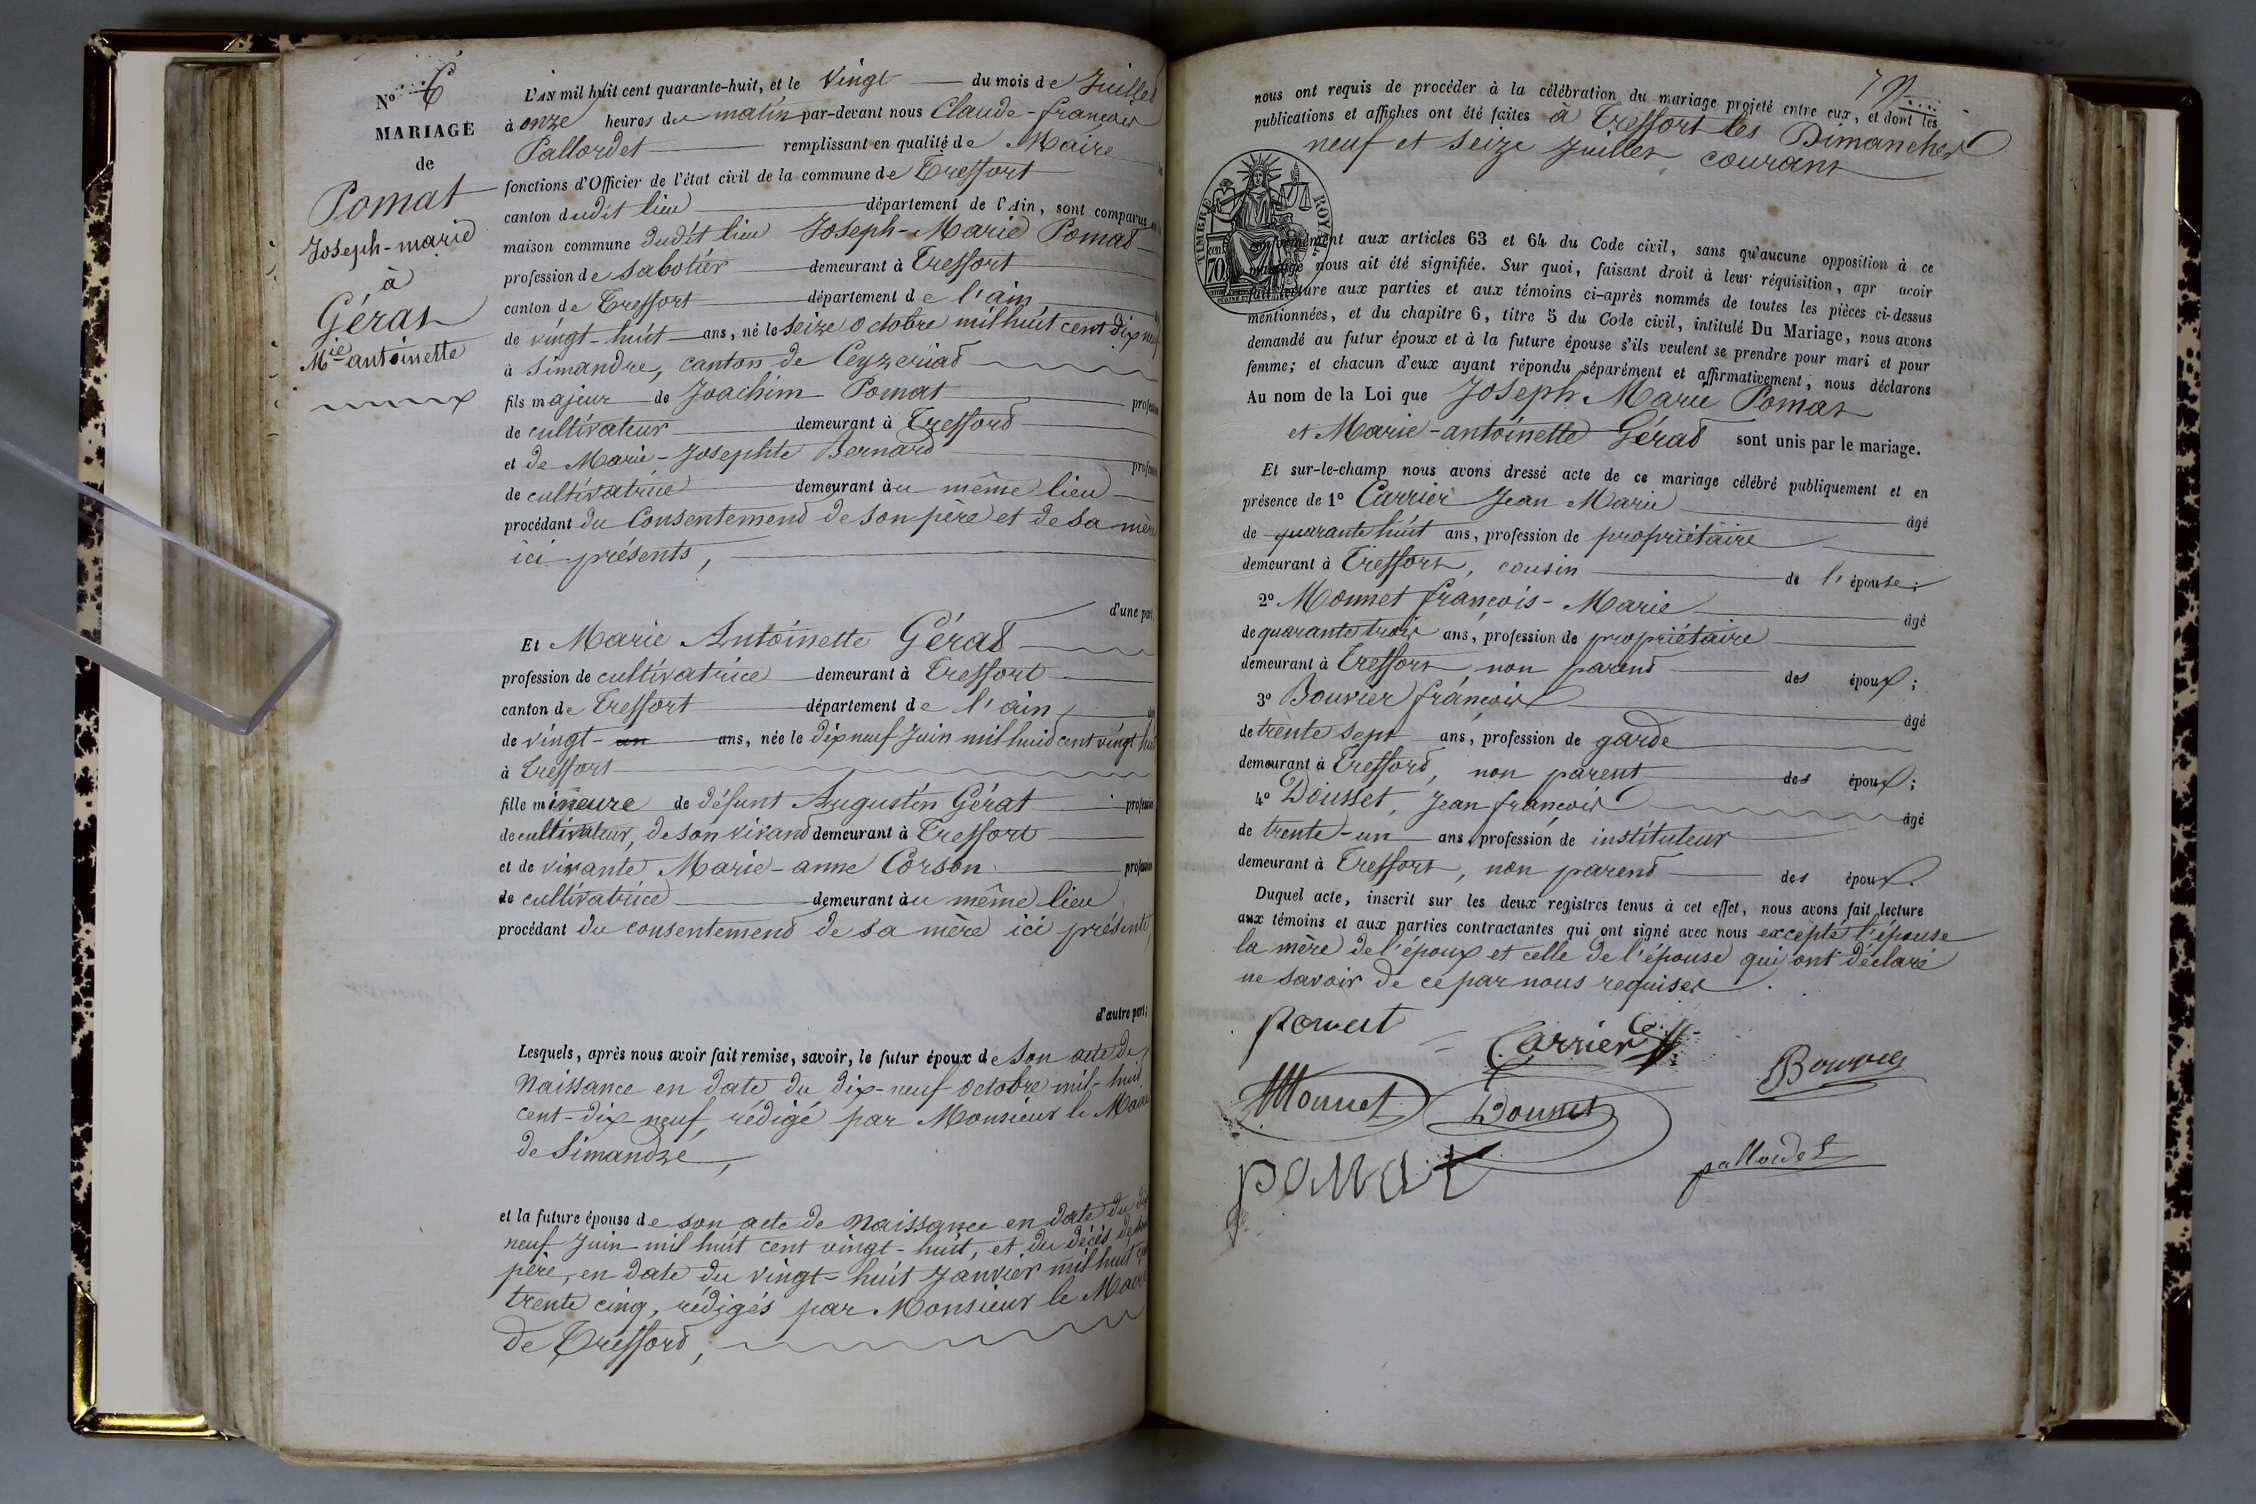 Nº 6
MARIAGE
de
Pomat
Joseph-marie
à
Gérat
Mie antoinette
L'AN mil huit cent quarante-huit, et le Vingt du mois de Juillet
à onze heures du matin par-devant nous Claude-françois
Pallordet remplissant en qualité de Maire
fonctions d'Officier de l'état civil de la commune de Treffort
canton dudit lieu département de l'Ain, sont comparus
maison commune dudit lieu Joseph-Marie Pomat
profession de sabotier demeurant à Treffort
canton de Treffort département de l'ain
de vingt-huit ans, né le seize octobre mil huit cent dix neuf
à Simandre, canton de Ceyzeriat
fils majeur de Joachim Pomat profession
de cultivateur demeurant à Treffort
et de Marie-Josephte Bernard profession
de cultivatrice demeurant au même lieu
procédant du Consentement de son père et de sa mère
ici présents,
d'une part,
Et Marie Antoinette Gérat
profession de cultivatrice demeurant à Treffort
canton de Treffort département de l'ain
de vingt-un ans, née le dix neuf Juin mil huit cent vingt huit
à Treffort
fille mineure de défunt Augustin Gérat profession
de cultivateur, de son vivant demeurant à Treffort
et de vivante Marie-anne Corson profession
de cultivatrice demeurant au même lieu
procédant du consentement de sa mère ici présente,
d'autre part;
Lesquels, après nous avoir fait remise, savoir, le futur époux de son acte de
Naissance en date du dix-neuf octobre mil-huit
cent-dix-neuf, rédigé par Monsieur le Maire
de Simandre,
et la future épouse de son acte de Naissance en date du dix
neuf Juin mil huit cent vingt-huit, et du décès de son
père, en date du vingt-huit Janvier mil huit cent
trente cinq, rédigés par Monsieur le Maire
de Treffort,
nous ont requis de procéder à la célébration du mariage projeté entre eux, et dont les
publications et affiches ont été faites à Treffort les Dimanches
neuf et seize Juillet courant
TIMBRE ROYAL
70
conformément aux articles 63 et 64 du Code civil, sans qu'aucune opposition à ce
mariage nous ait été signifiée. Sur quoi, faisant droit à leur réquisition, apr avoir
fait lecture aux parties et aux témoins ci-après nommés de toutes les pièces ci-dessus
mentionnées, et du chapitre 6, titre 5 du Code civil, intitulé Du Mariage, nous avons
demandé au futur époux et à la future épouse s'ils veulent se prendre pour mari et pour
femme; et chacun d'eux ayant répondu séparément et affirmativement, nous déclarons
Au nom de la Loi que Joseph Marie Pomat
et Marie-antoinette Gérat sont unis par le mariage.
Et sur-le-champ nous avons dressé acte de ce mariage célébré publiquement et en
présence de 1º Carrier Jean Marie âgé
de quarante huit ans, profession de propriétaire
demeurant à Treffort, cousin de l'épouse;
2º Monnet françois-Marie âgé
de quarante trois ans, profession de propriétaire
demeurant à Treffort non parent des époux;
3º Bouvier françois âgé
de trente sept ans, profession de garde
demeurant à Treffort, non parent des époux;
4º Dousset, Jean françois âgé
de trente-un ans, profession de instituteur
demeurant à Treffort, non parent des époux.
Duquel acte, inscrit sur les deux registres tenus à cet effet, nous avons fait lecture
aux témoins et aux parties contractantes qui ont signé avec nous excepté l'épouse
la mère de l'époux et celle de l'épouse qui ont déclaré
ne savoir de ce par nous requises.
pomat
Carrier
Bouvier
Monnet
Dousset
pomat
pallordet